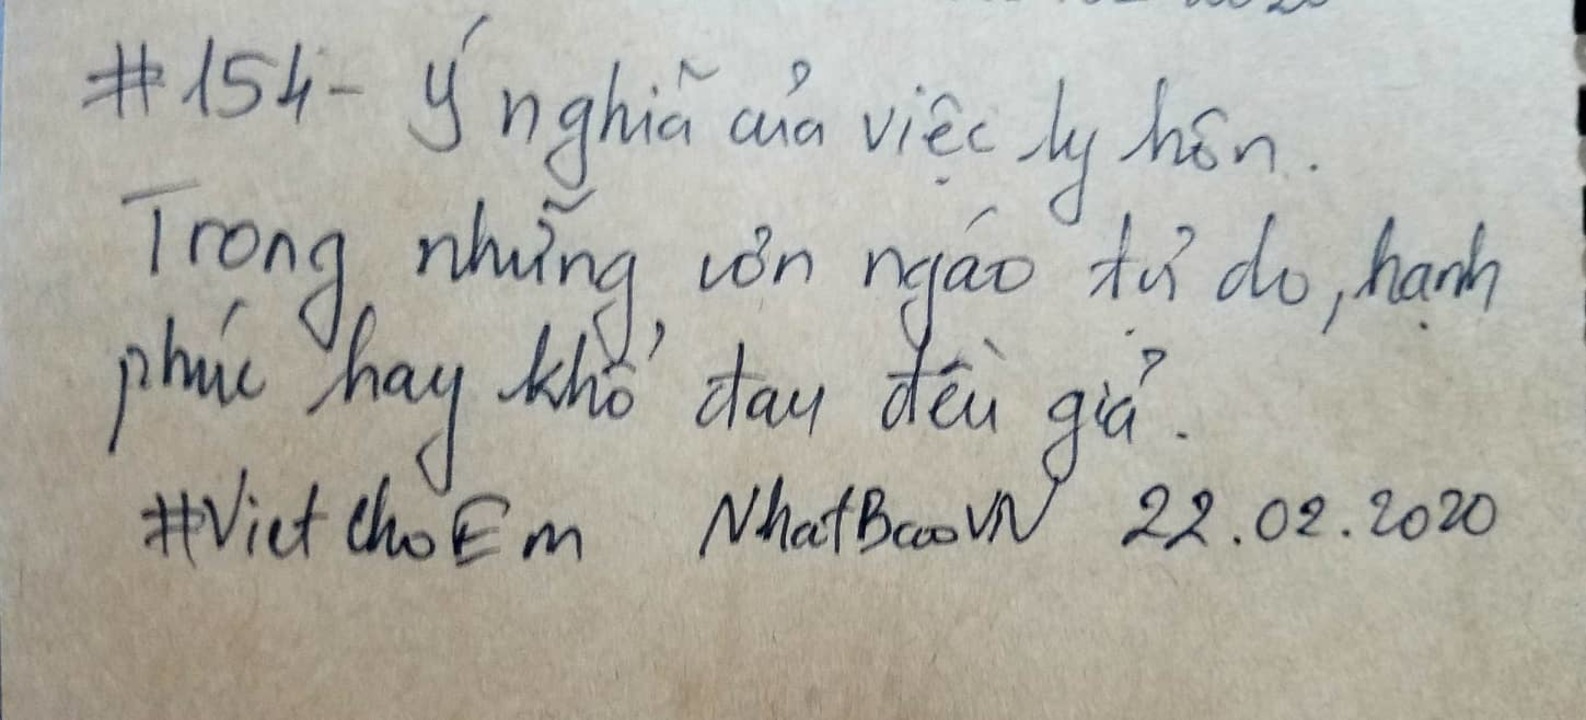 #154 - Ý nghĩa của việc ly hôn.
Trong những cơn ngáo tự do, hạnh
phúc hay khổ đau đều giả.
#VietchoEm NhatBaoVN 22.02.2020